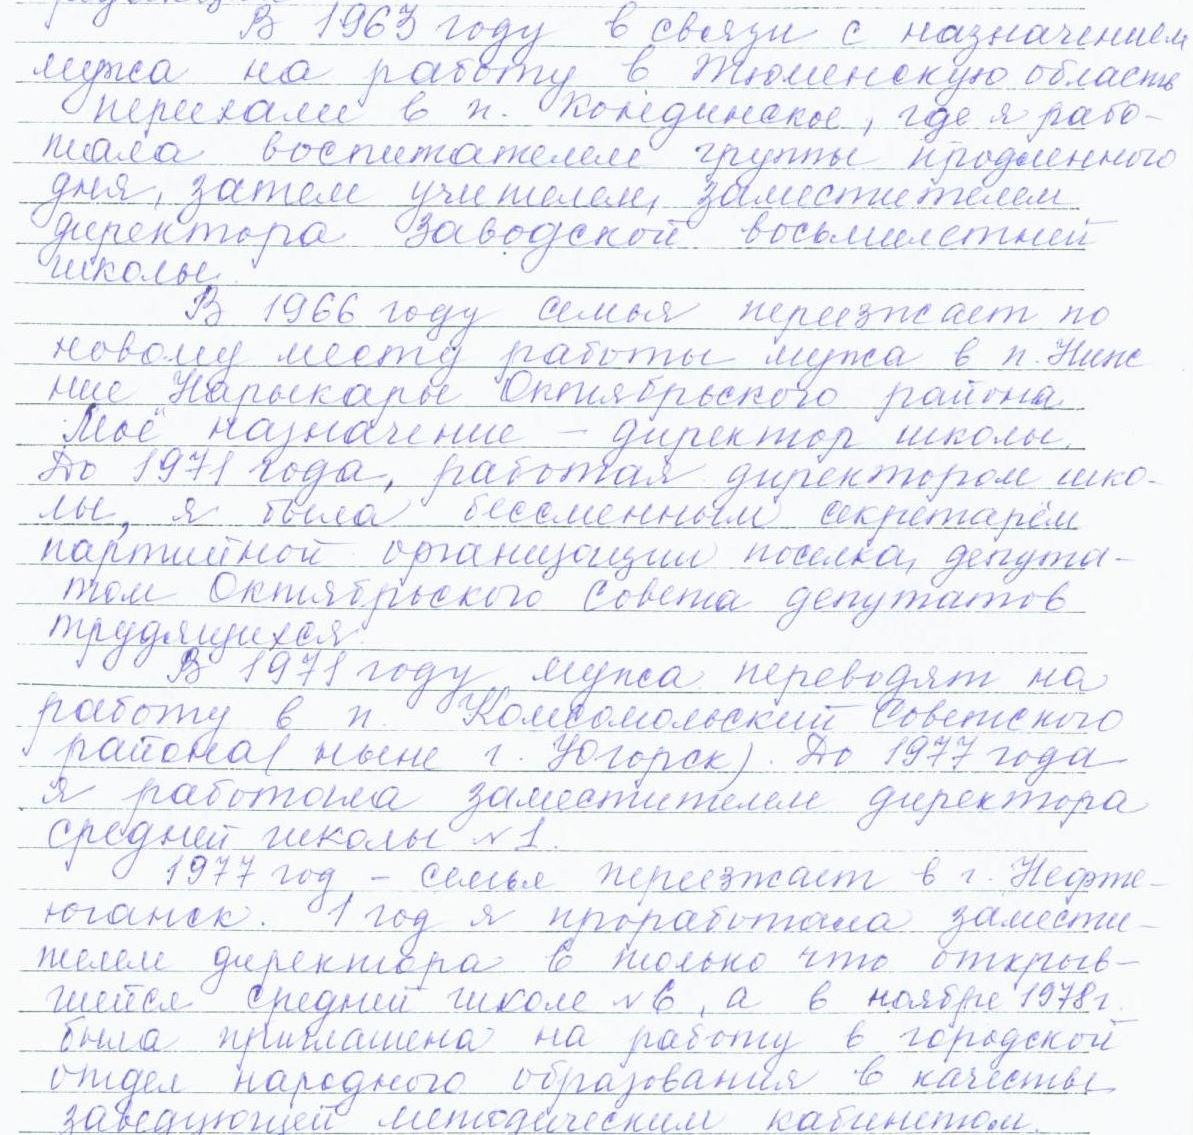 В 1963 году в связи с назначением
мужа на работу в Тюменскую область
переехали в п. Кондинское, где я рабо-
тала воспитателем группы продленного
дня, затем учителем, заместителем
директора Заводской восьмилетней
школы.
В 1966 году семья переезжает по
новому месту работы мужа в п. Ниж
ние Нарыкары Октябрьского района.
Моё назначение – директор школы.
До 1971 года, работая директором шко-
лы, я была бессменным секретарём
партийной организации поселка, депута-
том Октябрьского Совета депутатов
трудящихся.
В 1971 году мужа переводят на
работу в п. Комсомольский Советского
района (ныне г. Югорск). До 1977 года
я работала заместителем директора
средней школы №1.
1977 год – семья переезжает в г. Нефте-
юганск. 1 год я проработала замести-
телем директора в только что открыв-
шейся средней школе №6, а в ноябре 1978 г.
была приглашена на работу в городской
отдел народного образования в качестве
заведующей методическим кабинетом.